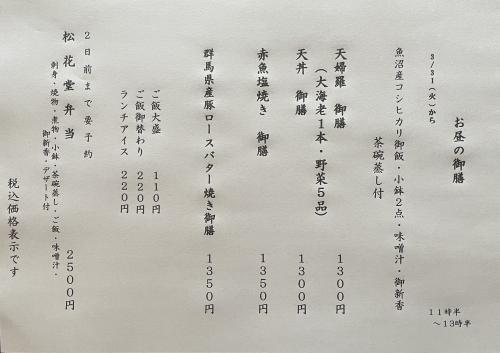 お昼の御膳
3/31(火)から
11時半
～13時半
魚沼産コシヒカリ御飯・小鉢2点・味噌汁・御新香
茶碗蒸し付
天婦羅 御膳 1300円
(大海老1本・野菜5品)
天丼 御膳 1300円
赤魚塩焼き 御膳 1350円
群馬県産豚ロースバター焼き御膳 1350円
ご飯大盛 110円
ご飯御替わり 220円
ランチアイス 220円
2日前まで要予約
松花堂弁当 2500円
刺身・焼物・煮物・小鉢・茶碗蒸し・ご飯・味噌汁・
御新香・デザート付
税込価格表示です